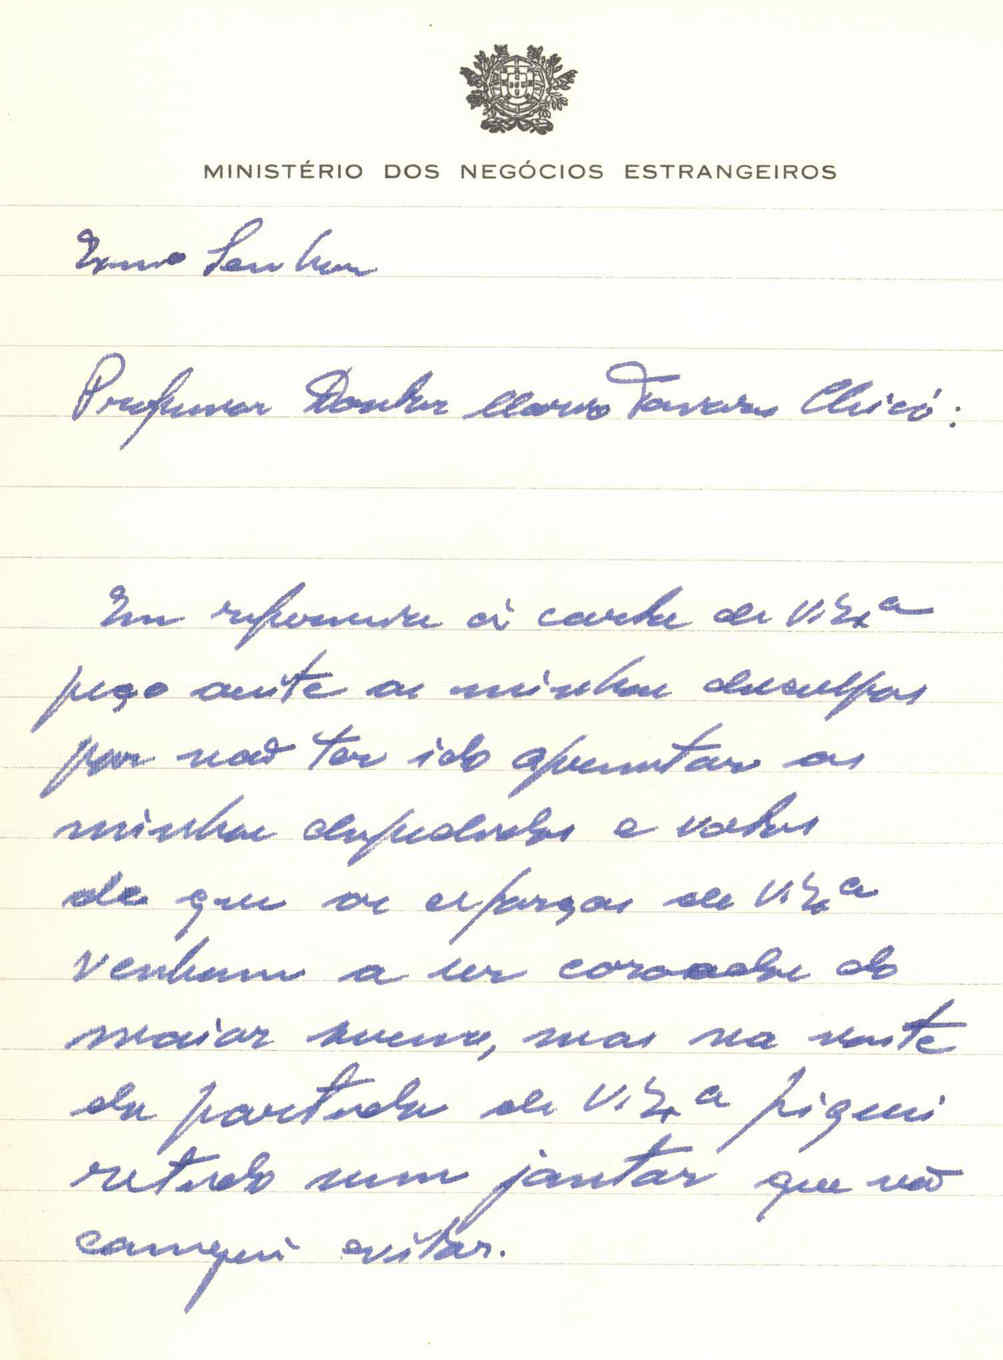 MINISTÉRIO DOS NEGÓCIOS ESTRANGEIROS
Exmo Senhor
Professor Doutor Mario Tavares Chicó:
Em resposta à carta de V. Exa
peço aceite as minhas desculpas
por não ter ido apresentar as
minhas despedidas e votos
de que os esforços de V. Exa
venham a ser coroados do
maior sucesso, mas na noite
da partida de V. Exa fiquei
retido num jantar que não
consegui evitar.